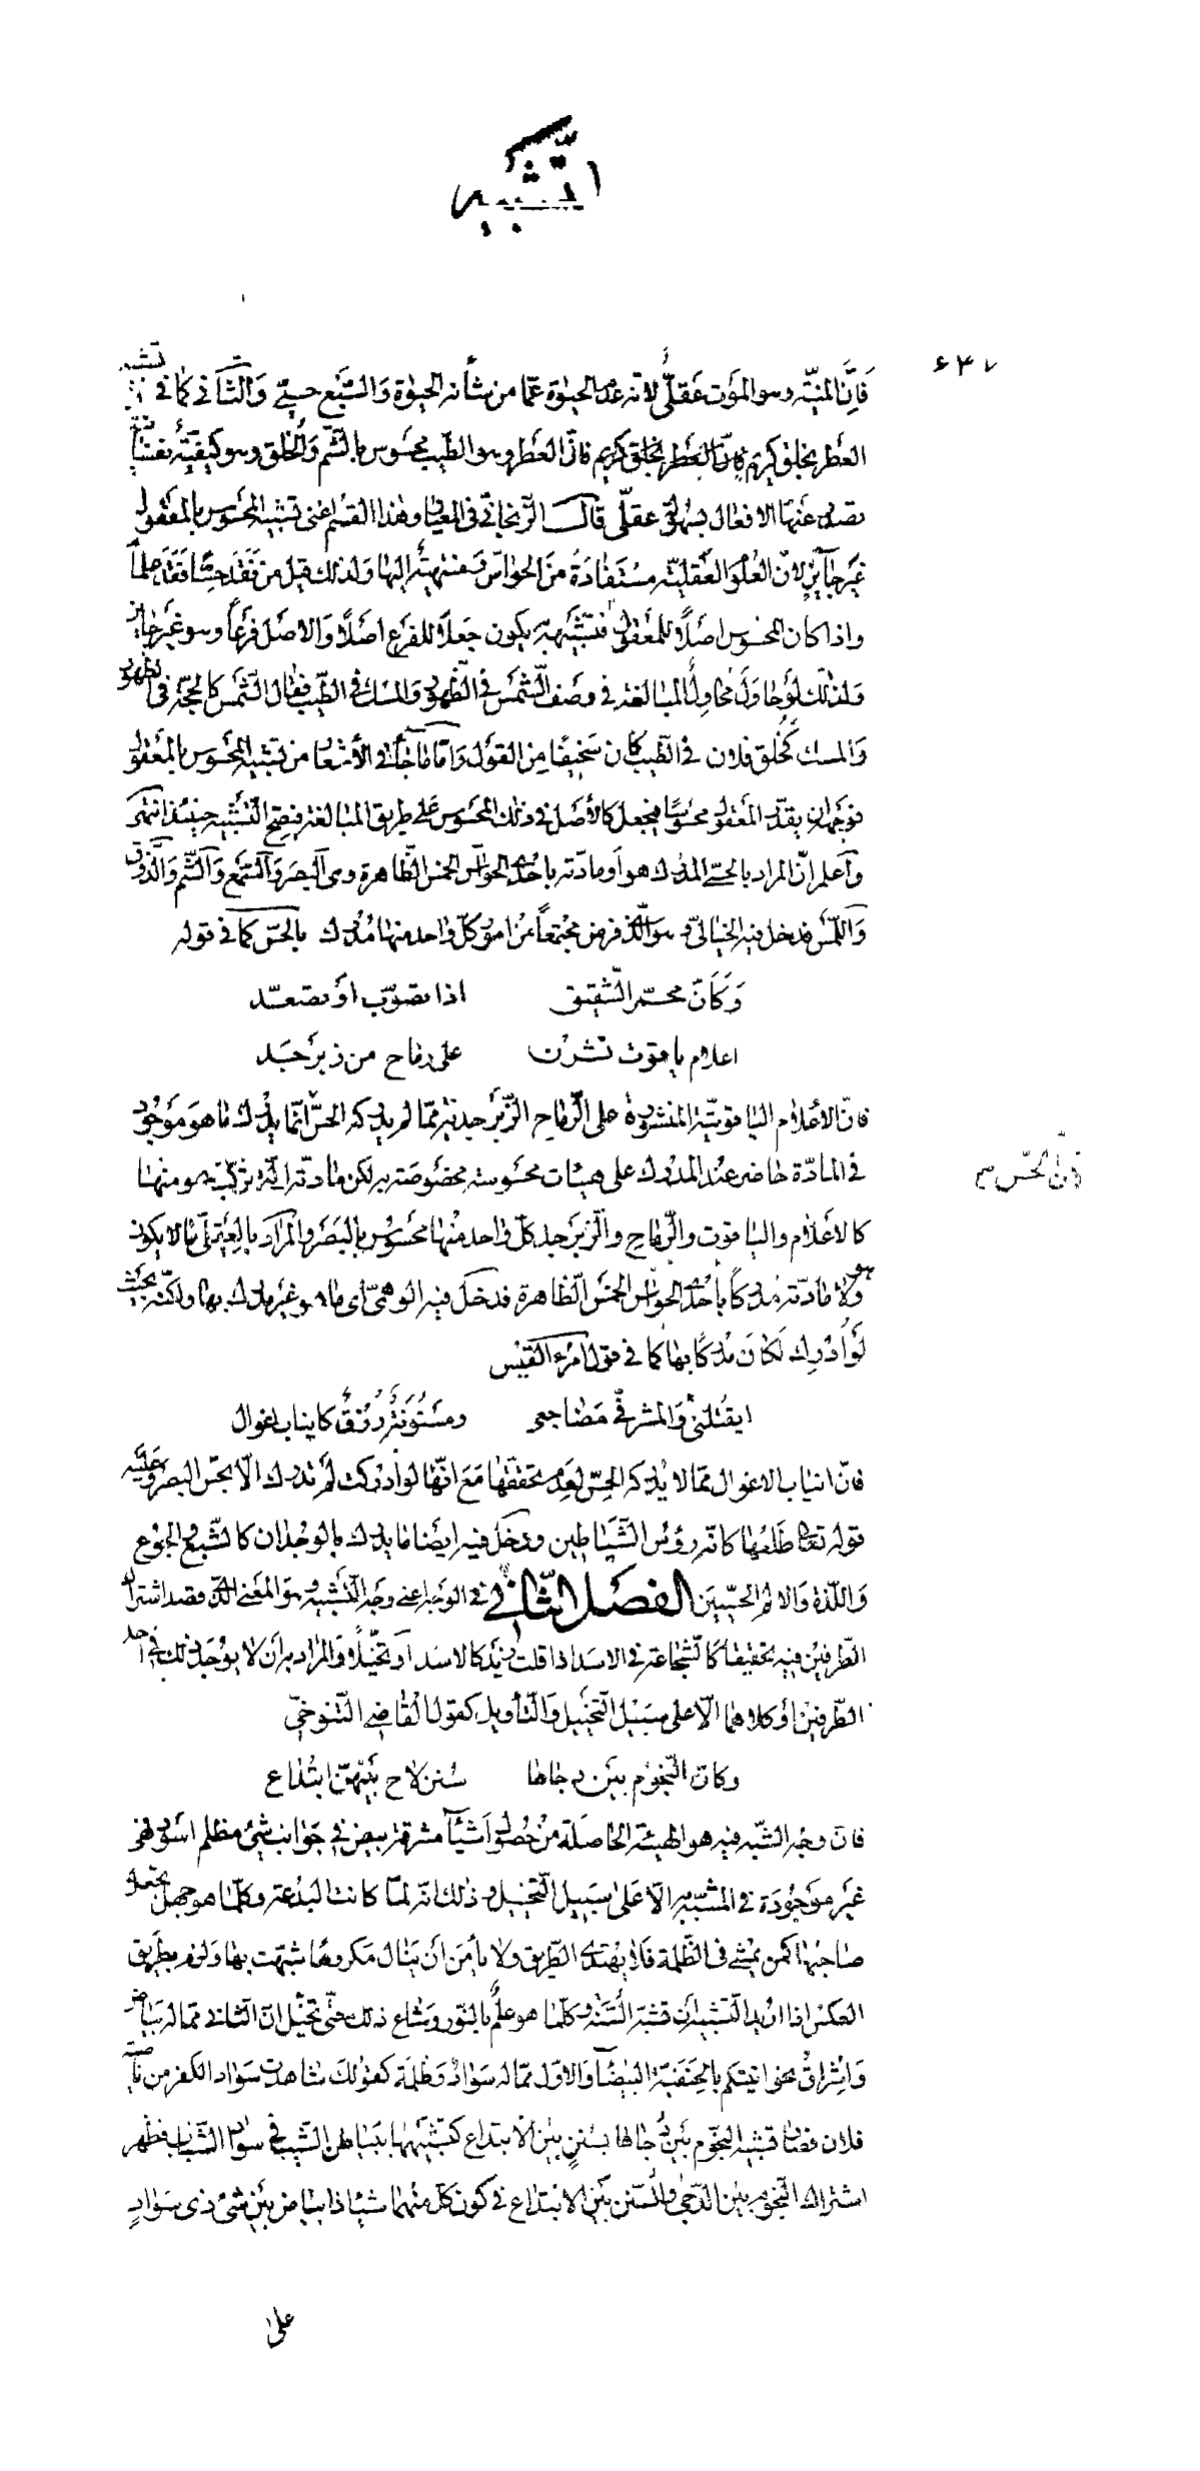 التشبيه
۶۳۷
فانّ المنيّة وهو الموت عقلىّ لانّه عدم الحيوة عمّا من شأنه الحيوة والسّبع حسىّ والثّانى كما فى تشبيه
العطر بخلق كريم فانّ العطر بخلق كريم فانّ العطر وهو الطّيب محسوس بالشّم والخلق وهو كيفيّة نفسانيّة
يصدر عنها الافعال بسهولة عقلّى قال الزّنجانى فى المعيار وهذا القسم اعنى تشبيه المحسوس بالمعقول
غير جايز لانّ العلوم العقليّة مستفادة من الحواسّ ومنتهية اليها ولذلك قيل من فقد حسّا فقد علما
واذا كان المحسوس اصلًا للمعقول فتشبيهه به يكون جعلًا للفرع اصلًا والاصل فرعاً وهو غير جايز
ولذلك لو حاول محاول المبالغة فى وصف الشّمس فى الظّهور والمسك فى الطّيب فقال الشّمس كالحجّة فى الظهور
والمسك كخلق فلان فى الطّيب كان سخيفا من القول وامّا ما جاء فى الأشعار من تشبيه المحسوس بالمعقول
فوجهه ان يقدّر المعقول محسوسًا فيجعل كالأصل فى ذلك المحسوس على طريق المبالغة فيصحّ التّشبيه حينئذ انتهى
واعلم انّ المراد بالحسّى المدرك هو او مادّته باحدى الحواسّ الخمس الظّاهرة وهى البصر والسّمع والشّم والذّوق
واللّمس فدخل فيه الخيالىّ وهو الّذى فرض مجتمعاً من امور كلّ واحد منها مدرك بالحسّ كما فى قوله
وكأنّ محمرّ الشّقيق اذا تصوّب او تصعّد
اعلام ياقوت نشرن على رماح من زبرجد
فانّ الأعلام الياقوتيّة المنشورة على الرّماح الزّبرجديّة ممّا لم يدركه الحسّ انّما يدرك ما هو موجود
فانّ الحسّ
فى المادّة حاضر عند المدرك على هيئات محسوسة مخصوصة به لكن مادّته الّتى تركّب هو منها
كالاعلام والياقوت والرّماح والزّبرجد كلّ واحد منها محسوس بالبصر والمراد بالعقلىّ ما لا يكون هو
ولا مادّته مدركاً باحدى الحواسّ الخمس الظّاهرة فدخل فيه الوهمىّ اى ما هو غير مدرك بها ولكنّه بحيث
لو ادرك لكان مدركًا بها كما فى قول امرء القيس
ايقتلنى والمشرفىّ مضاجعى ومسنونة زرق كانياب اغوال
فانّ انياب الاغوال ممّا لا يدركه الحسّ لعدم تحقّقها مع انّها لو ادركت لم تدرك الّا بحسّ البصر وعليه
قوله تعالى طلعها كانّه رؤس الشّياطين ودخل فيه ايضا ما يدرك بالوجدان كالشّبع والجوع
واللّذة والالم الحسّيّين الفصل الثّانى فى الوجه اعنى وجه التّشبيه وهو المعنى الّذى قصد اشتراك
الطّرفين فيه تحقيقا كالشّجاعة فى الاسد اذا قلت زيد كالاسد او تخيّلًا والمراد به ان لا يوجد ذلك فى احد
الطّرفين او كلاهما الّا على سبيل التّخييل والتّأويل كقول القاضى التّنوخىّ
وكانّ النّجوم بين دجاها سنن لاح بينهنّ ابتداع
فانّ وجه الشّبه فيه هو الهيئة الحاصلة من حصول اشياء مشرقة بيض فى جوانب شىء مظلم اسود فهى
غير موجودة فى المشبّه به الّا على سبيل التّخييل وذلك انّه لمّا كانت البدعة وكلّما هو جهل تجعل
صاحبها كمن يمشى فى الظّلمة فلا يهتدى الطّريق ولا يأمن ان ينال مكروها شبّهت بها ولزم بطريق
العكس اذا اريد التّشبيه ان تشبّه السّنّة وكلّما هو علم بالنّور وشاع ذلك حتّى تخيّل انّ الثّانى ممّا له بياض
واشراق نحو اتيتكم بالحنفيّة البيضاء والاوّل ممّا له سواد وظلمة كقولك شاهدت سواد الكفر من ناصية
فلان فصار تشبيه النّجوم بين دجاها بسنن بين الابتداع كتشبيهها ببياض الشّيب فى سواد الشّباب فظهر
اشتراك النّجوم بين الدّجى والسّنن بين الابتداع فى كون كلّ منهما شيئا ذا بياض بين شىء ذى سواد
على